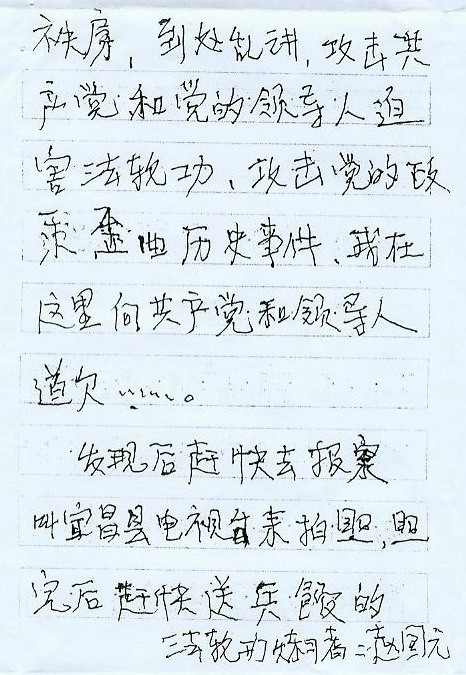 房，到处乱讲，攻击共
产党和党的领导人迫
害法轮功、攻击党的政
策歪曲历史事件、我在
这里向共产党和领导人
道欠……。
发现后赶快去报案
叫宜昌县电视台来拍照，照
完后赶快送兵的
法轮功炼习者：赵国元